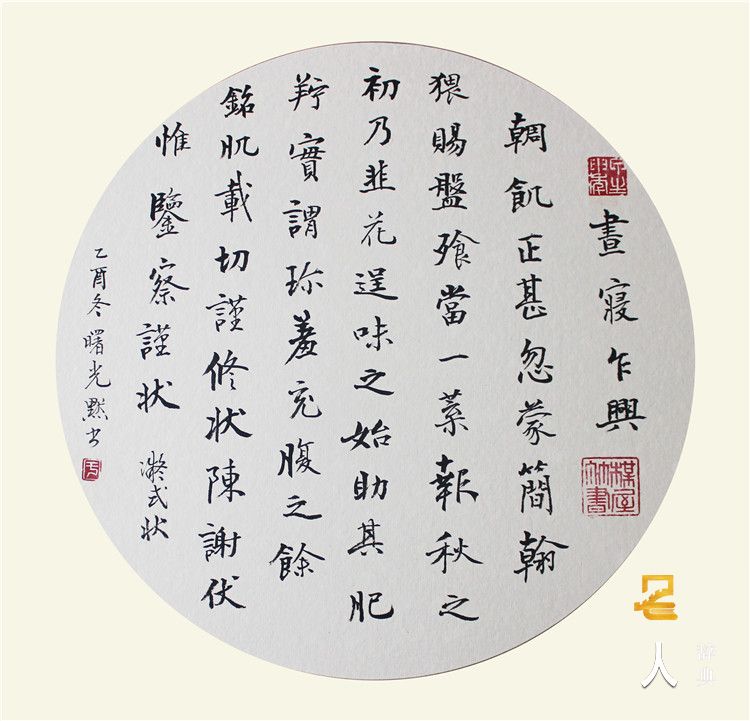 晝寢乍興
輖飢正甚忽蒙簡翰
猥賜盤飧當一葉報秋之
初乃韭花逞味之始助其肥
羜實謂珍羞充腹之餘
銘肌載切謹修状陳謝伏
惟鑒察謹状
凝式状
乙酉冬曙光默书
人